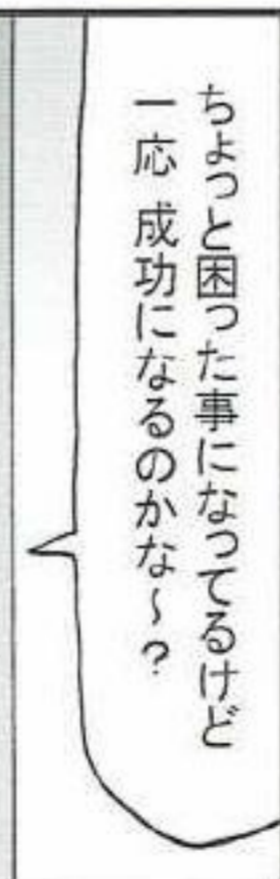 ちょっと困った事になってるけど
一応 成功になるのかな～？